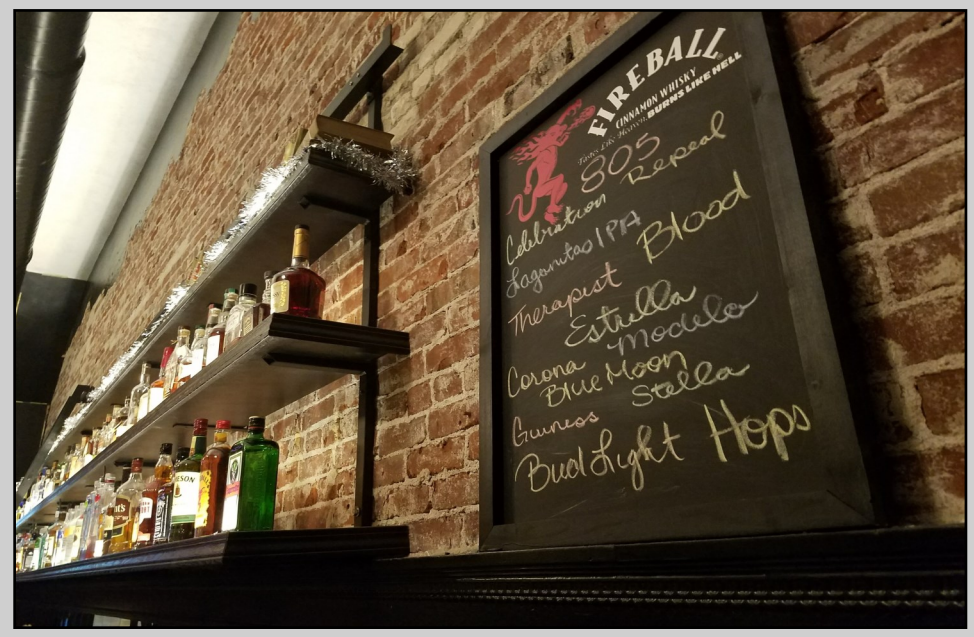 FIREBALL
CINNAMON WHISKY
Tastes Like Heaven, BURNS LIKE HELL
805
Repeal
Celebration
Lagunitas IPA
Blood
Therapist
Estrella
Modelo
Corona
Blue Moon
Stella
Guiness
Bud Light
Hops
ESON